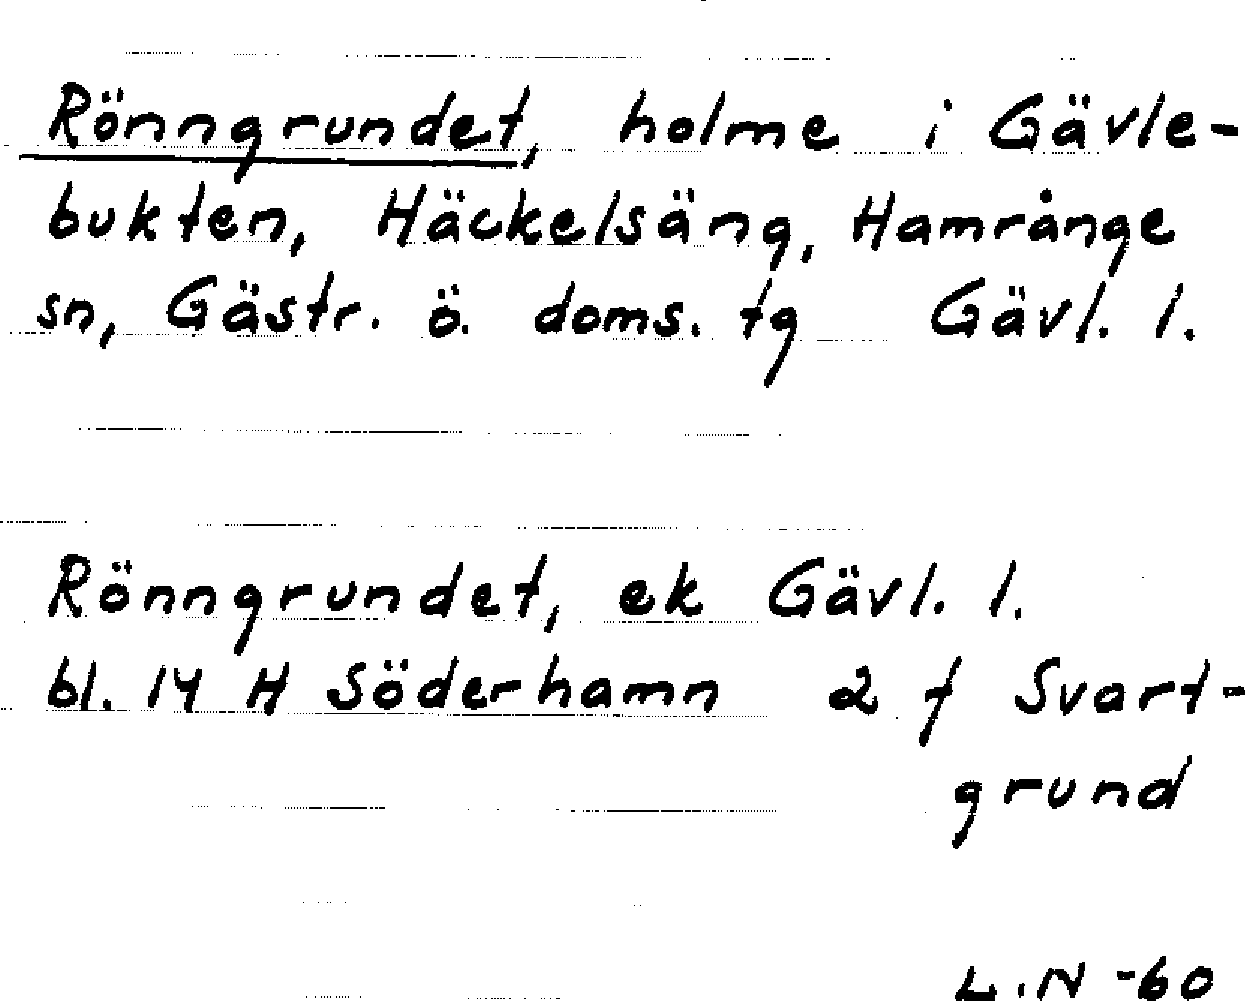 Rönngrundet, holme i Gävle-
bukten, Häckelsäng, Hamrånge
sn, Gästr. ö. doms. tg Gävl. l.
Rönngrundet, ek Gävl. l.
bl. 14 H Söderhamn 2 f Svart-
grund
L.N -60